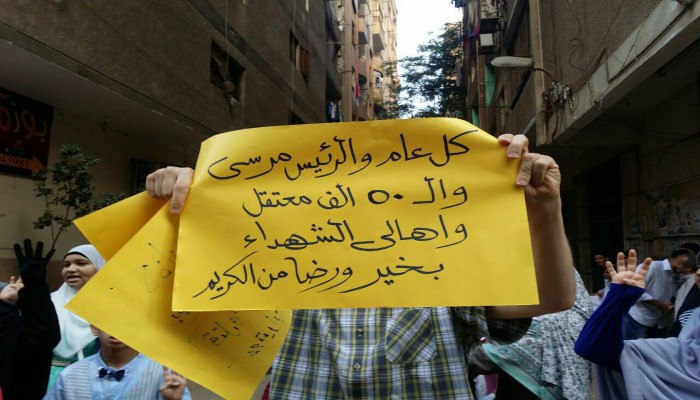 كل عام والرئيس مرسى
والـ ٥٠ الف معتقل
واهالى الشهداء
بخير ورضا من الكريم